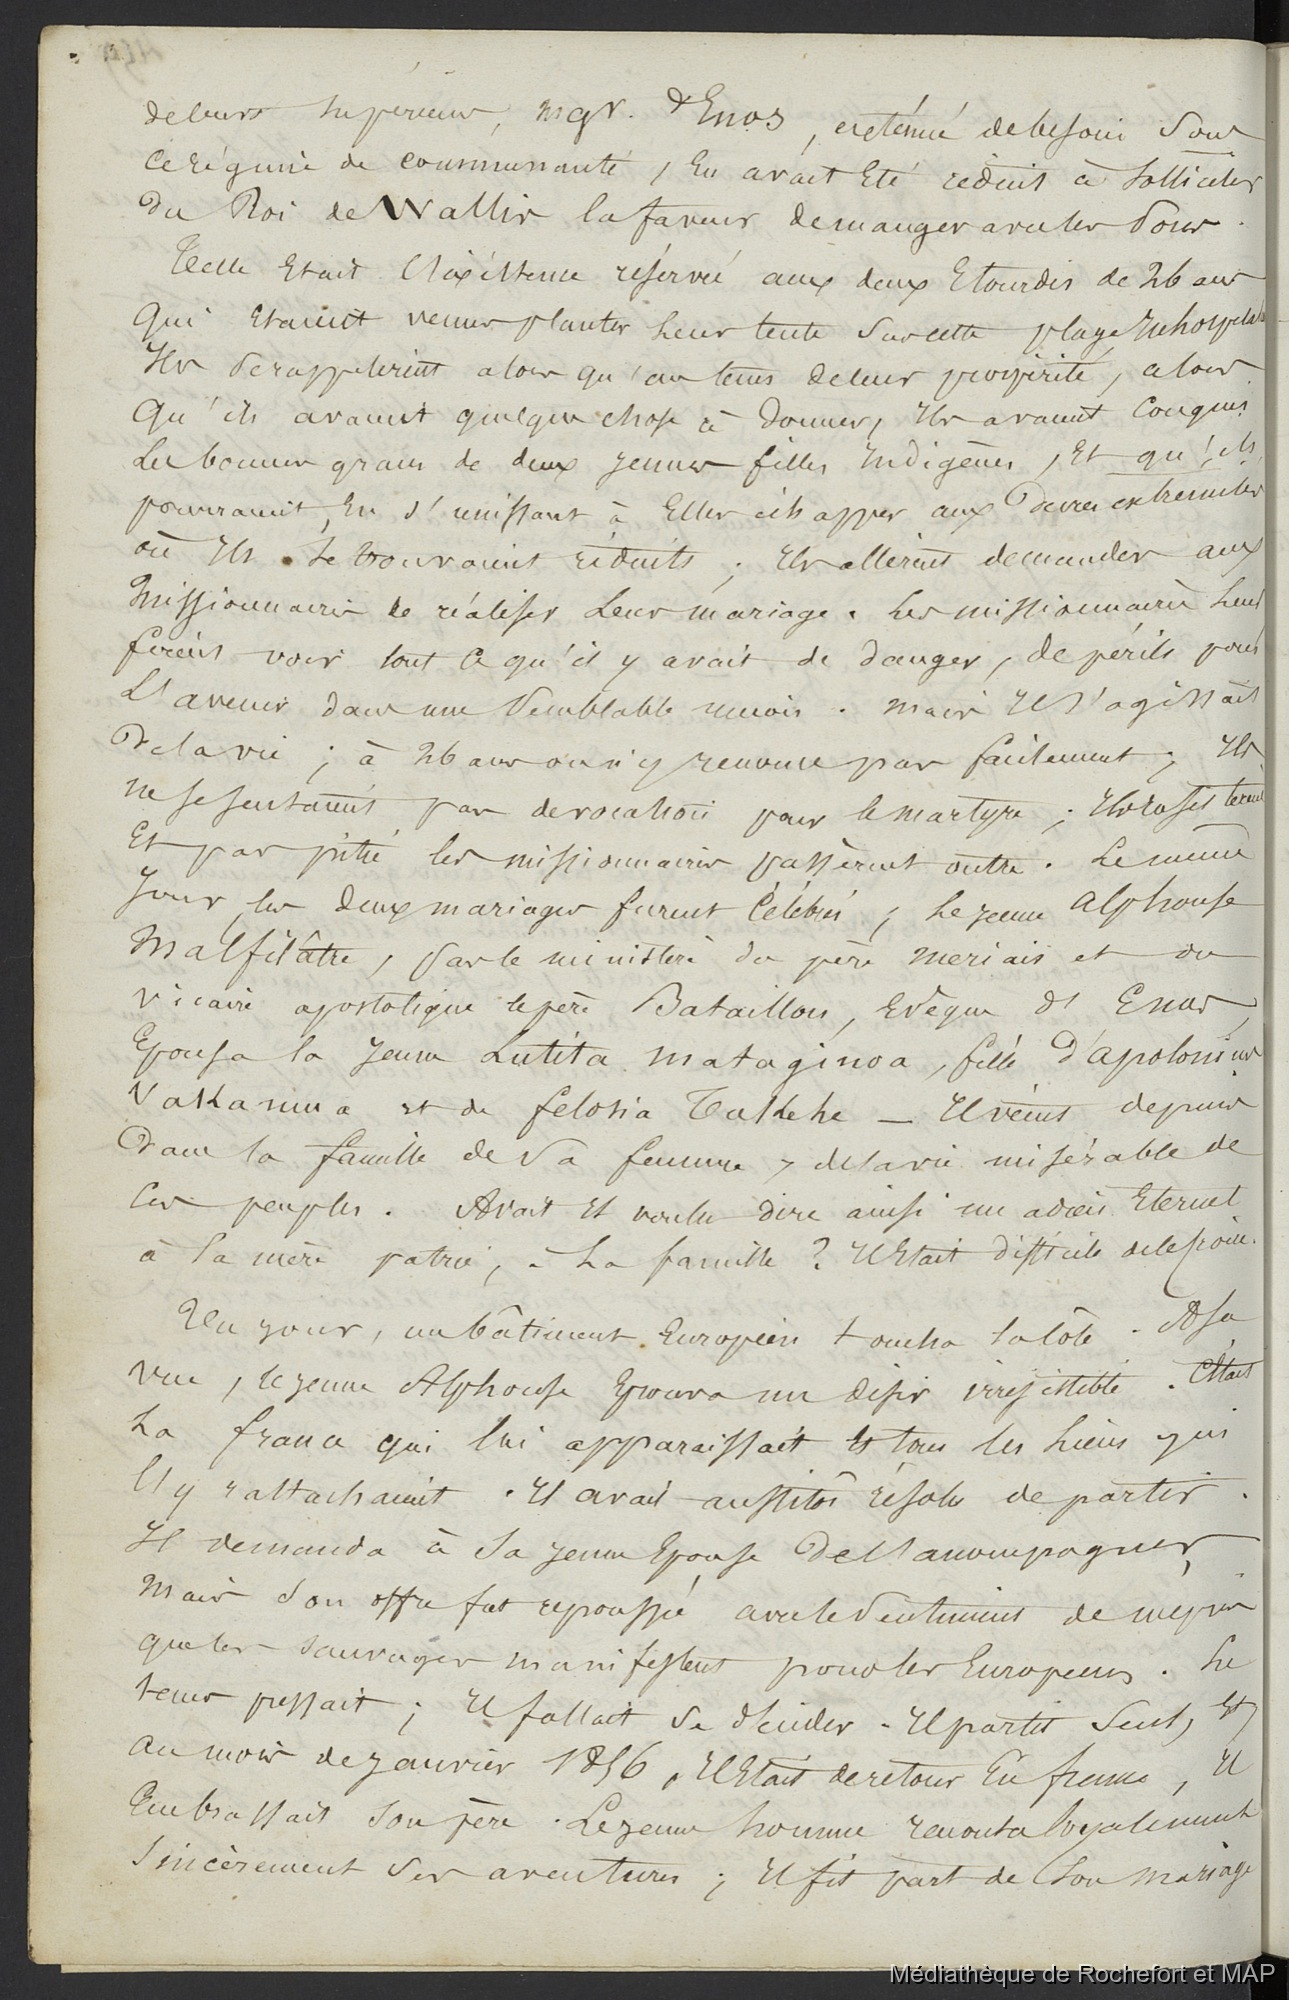 de leurs supérieurs, mgr. d'Enos, exténué de besoin sous
ce régime de communauté, en avait été réduit à solliciter
du Roi de Wallis la faveur de manger avec les Porcs.
Telle était l'existence réservée aux deux Etourdis de 26 ans
qui étaient venus planter leur tente sur cette plage inhospitalière
Ils se rappelèrent alors qu'au tems de leur prospérité, alors
qu'ils avaient quelque chose à donner, ils avaient conquis
les bonnes graces de deux jeunes filles indigènes, et qu'ils
pourraient, en s'unissant à elles échapper aux dures extremités
où ils se trouvaient réduits ; ils allèrent demander aux
missionnaires de réaliser leur mariage. Les missionnaires leur
firent voir tout ce qu'il y avait de danger, de périls pour
l'avenir dans une semblable union. mais il s'agissait
de la vie ; à 26 ans on n'y renonce pas facilement ; ils
ne se sentaient pas de vocation pour le martyre ; ils insistèrent
et par pitié les missionnaires passèrent outre. Le même
jour, les deux mariages furent célébrés ; le jeune Alphonse
Malfilâtre, par le ministère du père meriais et du
vicaire apostolique le père Bataillon, évêque d'Enos,
Epousa la jeune Lutita mataginoa, fille d'apolonius
Vakamua et de felosia Takehe — Il vécut depuis
dans la famille de sa femme, de la vie misérable de
ces peuples. Avait il voulu dire ainsi un adieu Eternel
à la mère patrie, à la famille ? Il était difficile de le savoir.
Un jour, un bâtiment Européen toucha la côte. A sa
vue, le jeune Alphonse Eprouva un désir irrésistible. C'était
la france qui lui apparaissait et tous les liens qui
l'y rattachaient. Il avait aussitôt résolu de partir.
Il demanda à sa jeune Epouse de l'accompagner,
mais son offre fut repoussée avec le sentiment de mépris
que les sauvages manifestent pour les Européens. Le
tems pressait ; il fallait se décider. Il partit seul, et
au mois de janvier 1856, il était de retour en france, il
Embrassait son père. Le jeune homme raconta loyalement
sincèrement ses aventures ; il fit part de son mariage
Médiathèque de Rochefort et MAP